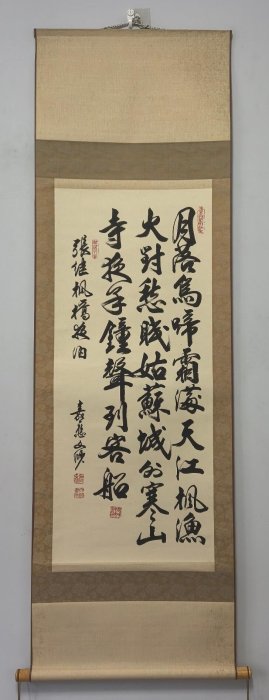 月落烏啼霜滿天江楓漁
火對愁眠姑蘇城外寒山
寺夜半鐘聲到客船
張继楓橋夜泊